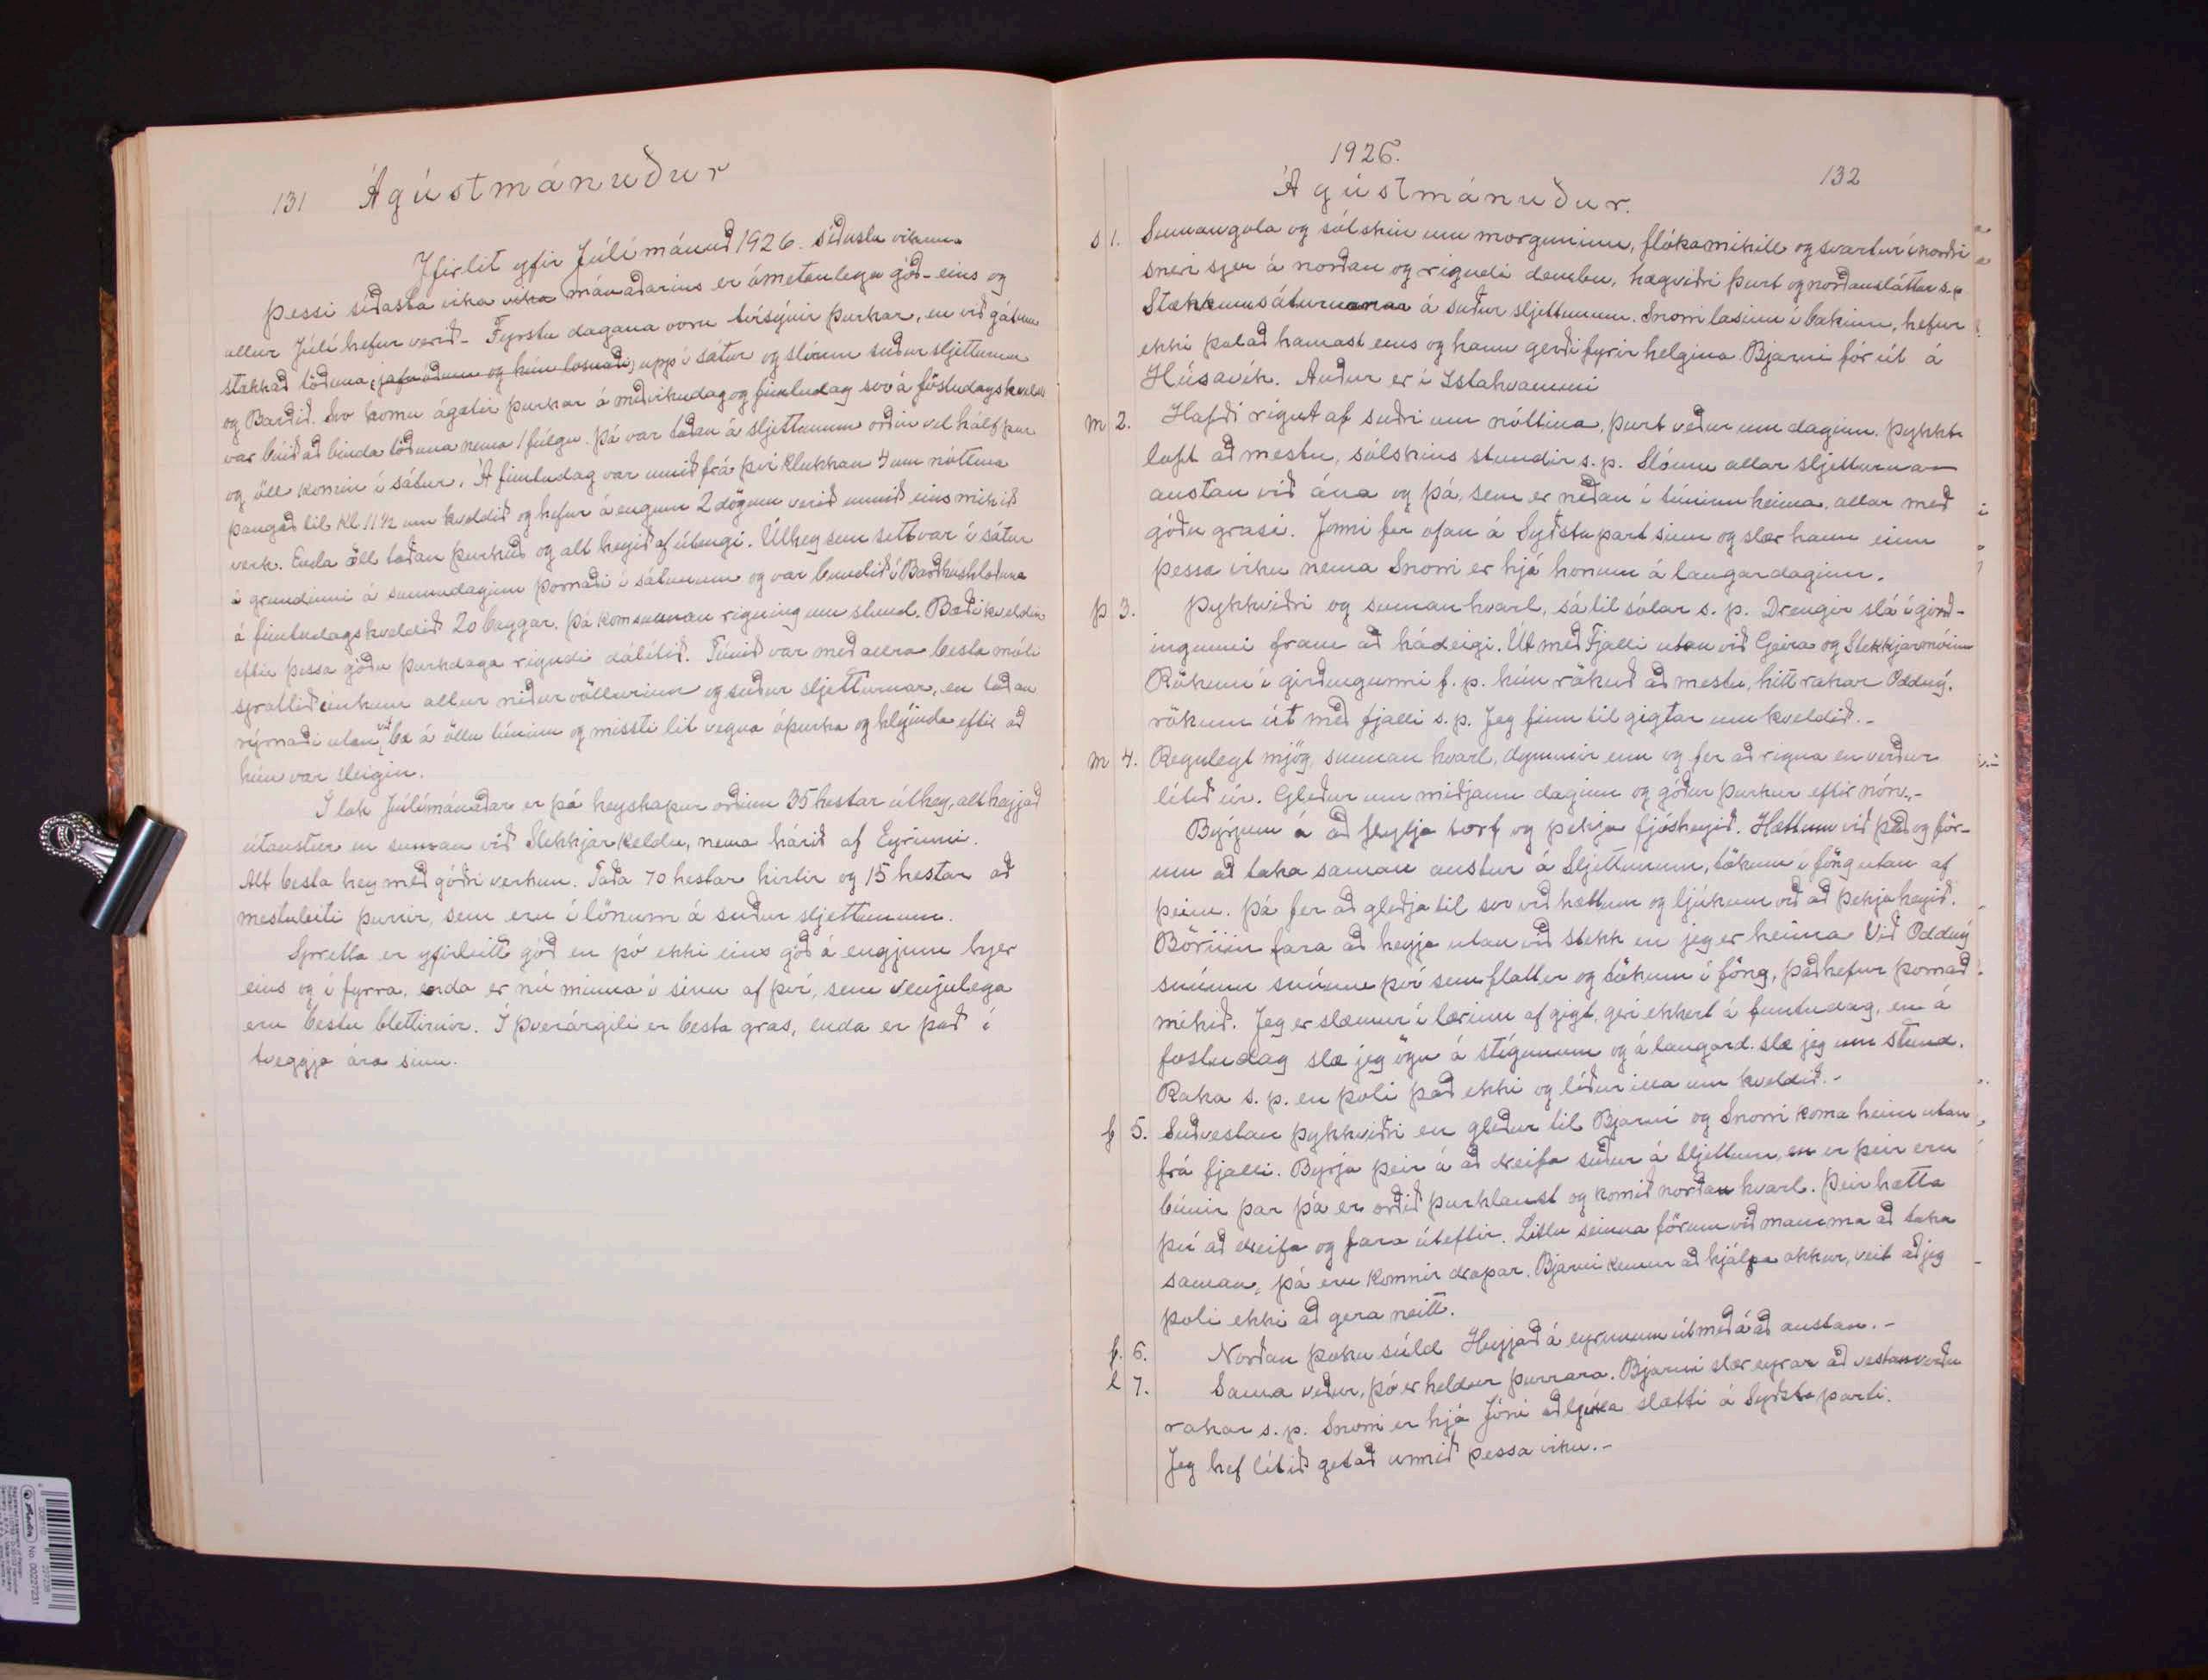 131 Ágústmánuður
Yfirlit yfir Júlímánuð 1926. síðustu vikuna
Þessi síðasta vika vika mánaðarins er ómetanlega góð - eins og
allur Júlí hefur verið - Fyrstu dagana voru tvísýnir þurkar, en við gátum
stakkað töðuna, jafnóðum og hún losnaði, upp í sátur og slóum suður slјetturnar
og Barðið. Svo komu ágætir þurkar á miðvikudag og fimtudag svo á föstudagskveld
var búið að binda töðuna nema 1 fúlgu. Þá var taðan á sljettunum orðin vel hálf þur
og öll komin í sátur. Á fimtudag var unnið frá því klukkan 4 um nóttina
þangað til Kl 11½ um kveldið og hefur á engum 2 dögum verið unnið eins mikið
verk. Enda öll taðan þurkuð og alt heyið af útengi. Úthey sem sett var í sátur
á grundinni á sunnudaginn þornaði í sátunum og var bundið í Barðhushlöðuna
á fimtudagskveldið 20 baggar. Þá kom sunnan rigning um stund. Bæði kveldin
eftir þessa góðu þurkdaga rigndi dálítið. Túnið var með allra besta móti
sprottið einkum allur niður völlurinn og suður sljetturnar, en taðan
rýrnaði utan við bæ á öllu túninu og missti lit vegna óþurka og hlýinda eftir að
hún var slegin.
Í lok Júlímánaðar er þá heyskapur orðinn 35 hestar úthey, alt heyjað
útaustur en sunnan við Stekkjarkeldu, nema hárið af Eyrinni.
Alt besta hey með góðri verkun. Taða 70 hestar hirtir og 15 hestar að
mestuleiti þurrir, sem eru í lönum á suður sljettunum.
Spretta er yfirleitt góð en þó ekki eins góð á engjum hjer
eins og í fyrra, enda er nú minna í sinu af því, sem venjulega
eru bestu blettirnir. Í Þverárgili er besta gras, enda er það í
tveggja ára sinu.
1926.
132
Ágústmánuður.
s 1. Sunnangola og sólskin um morguninn, flókamikill og svartur í norðri
snéri sjer á norðan og rigndi dembu, hægviðri þurt og norðansláttur s.p
Stækkum sáturnar á suður sljettunum. Snorri lasinn í bakinu, hefur
ekki þolað hamast eins og hann gerði fyrir helgina Bjarni fór út á
Húsavík. Auður er í Ístahvammi
m 2. Hafði rignt af suðri um nóttina, þurt veður um daginn. Þykkt
loft að mestu, sólskins stundir s.p. Slóum allar sljetturnar
austan við ána og þá, sem er neðan í túninu heima, allar með
góðu grasi. Jonni fer ofan á Syðstapart sinn og slær hann einn
þessa viku nema Snorri er hjá honum á laugardaginn.
þ 3. Þykkviðri og sunnan kvarl, sá til sólar s. p. Drengir slá í girð-
ingunni fram að hádeigi. Út með Fjalli utan við Geira og Stekkjarmóinn
Rökum í girðingunni f. p. hún rökuð að mestu, hitt rakar Oddný.
rökum út með fjalli s.p. Jeg finn til gigtar um kveldið. -
m 4. Regnlegt mjög, sunnan kvarl, dymmir enn og fer að rigna en verður
lítið úr. Gleður um miðjann daginn og góður þurkur eftir nón. -
Byrjum á að flytja torf og þekja fjósheyið. Hættum við það og för-
um að taka saman austur á Sljettunum, tökum í föng utan af
þeim. Þá fer að gleðja til svo við hættum og ljúkum við að þekja heyið.
Börnin fara að heyja utan við stekk en jeg er heima Við Oddný
snúum snúum því sem flatter og tökum í föng, það hefur þornað
mikið. Jeg er slæmur í lærinu af gigt, geri ekkert á fimtudag, en á
föstudag slæ jeg ögn á stígunum og á laugard. slæ jeg um stund.
Raka s. p. en þoli það ekki og líður illa um kveldið. -
f 5. Suðvestan þykkviðri en gleður til Bjarni og Snorri koma heim utan
frá fjalli. Byrja þeir á að dreifa suður á Sljettum, en er þeir eru
búnir þar þá er orðið þurklaust og komið norðan kvarl. Þeir hætta
því að dreifa og fara úteftir. Litlu seinna förum við mamma að taka
saman, þá eru komnir dropar. Bjarni kemur að hjálpa okkur, veit að jeg
þoli ekki að gera neitt.
f. 6. Norðan þoku súld Heyjað á eyrunum út með á að austan. -
l 7. Sama veður, þó er heldur þurrara. Bjarni slær eyrar að vestanverðu
rakar s. p. Snorri er hjá Jóni að ljúka slætti á Syðsta parti.
Jeg hef lítið getað unnið þessa viku. -
No. D0227231